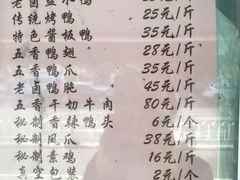 老卤盐水鸭 22元/斤
传统烤鸭 25元/斤
特色酱板鸭 35元/斤
五香鸭翅 28元/斤
五香鸭爪 35元/斤
老卤鸭肫 45元/斤
五香干切牛肉 80元/斤
秘制香辣鸭头 6元/个
秘制凤爪 38元/斤
秘制素鸡 16元/斤
真空包装 2元/个